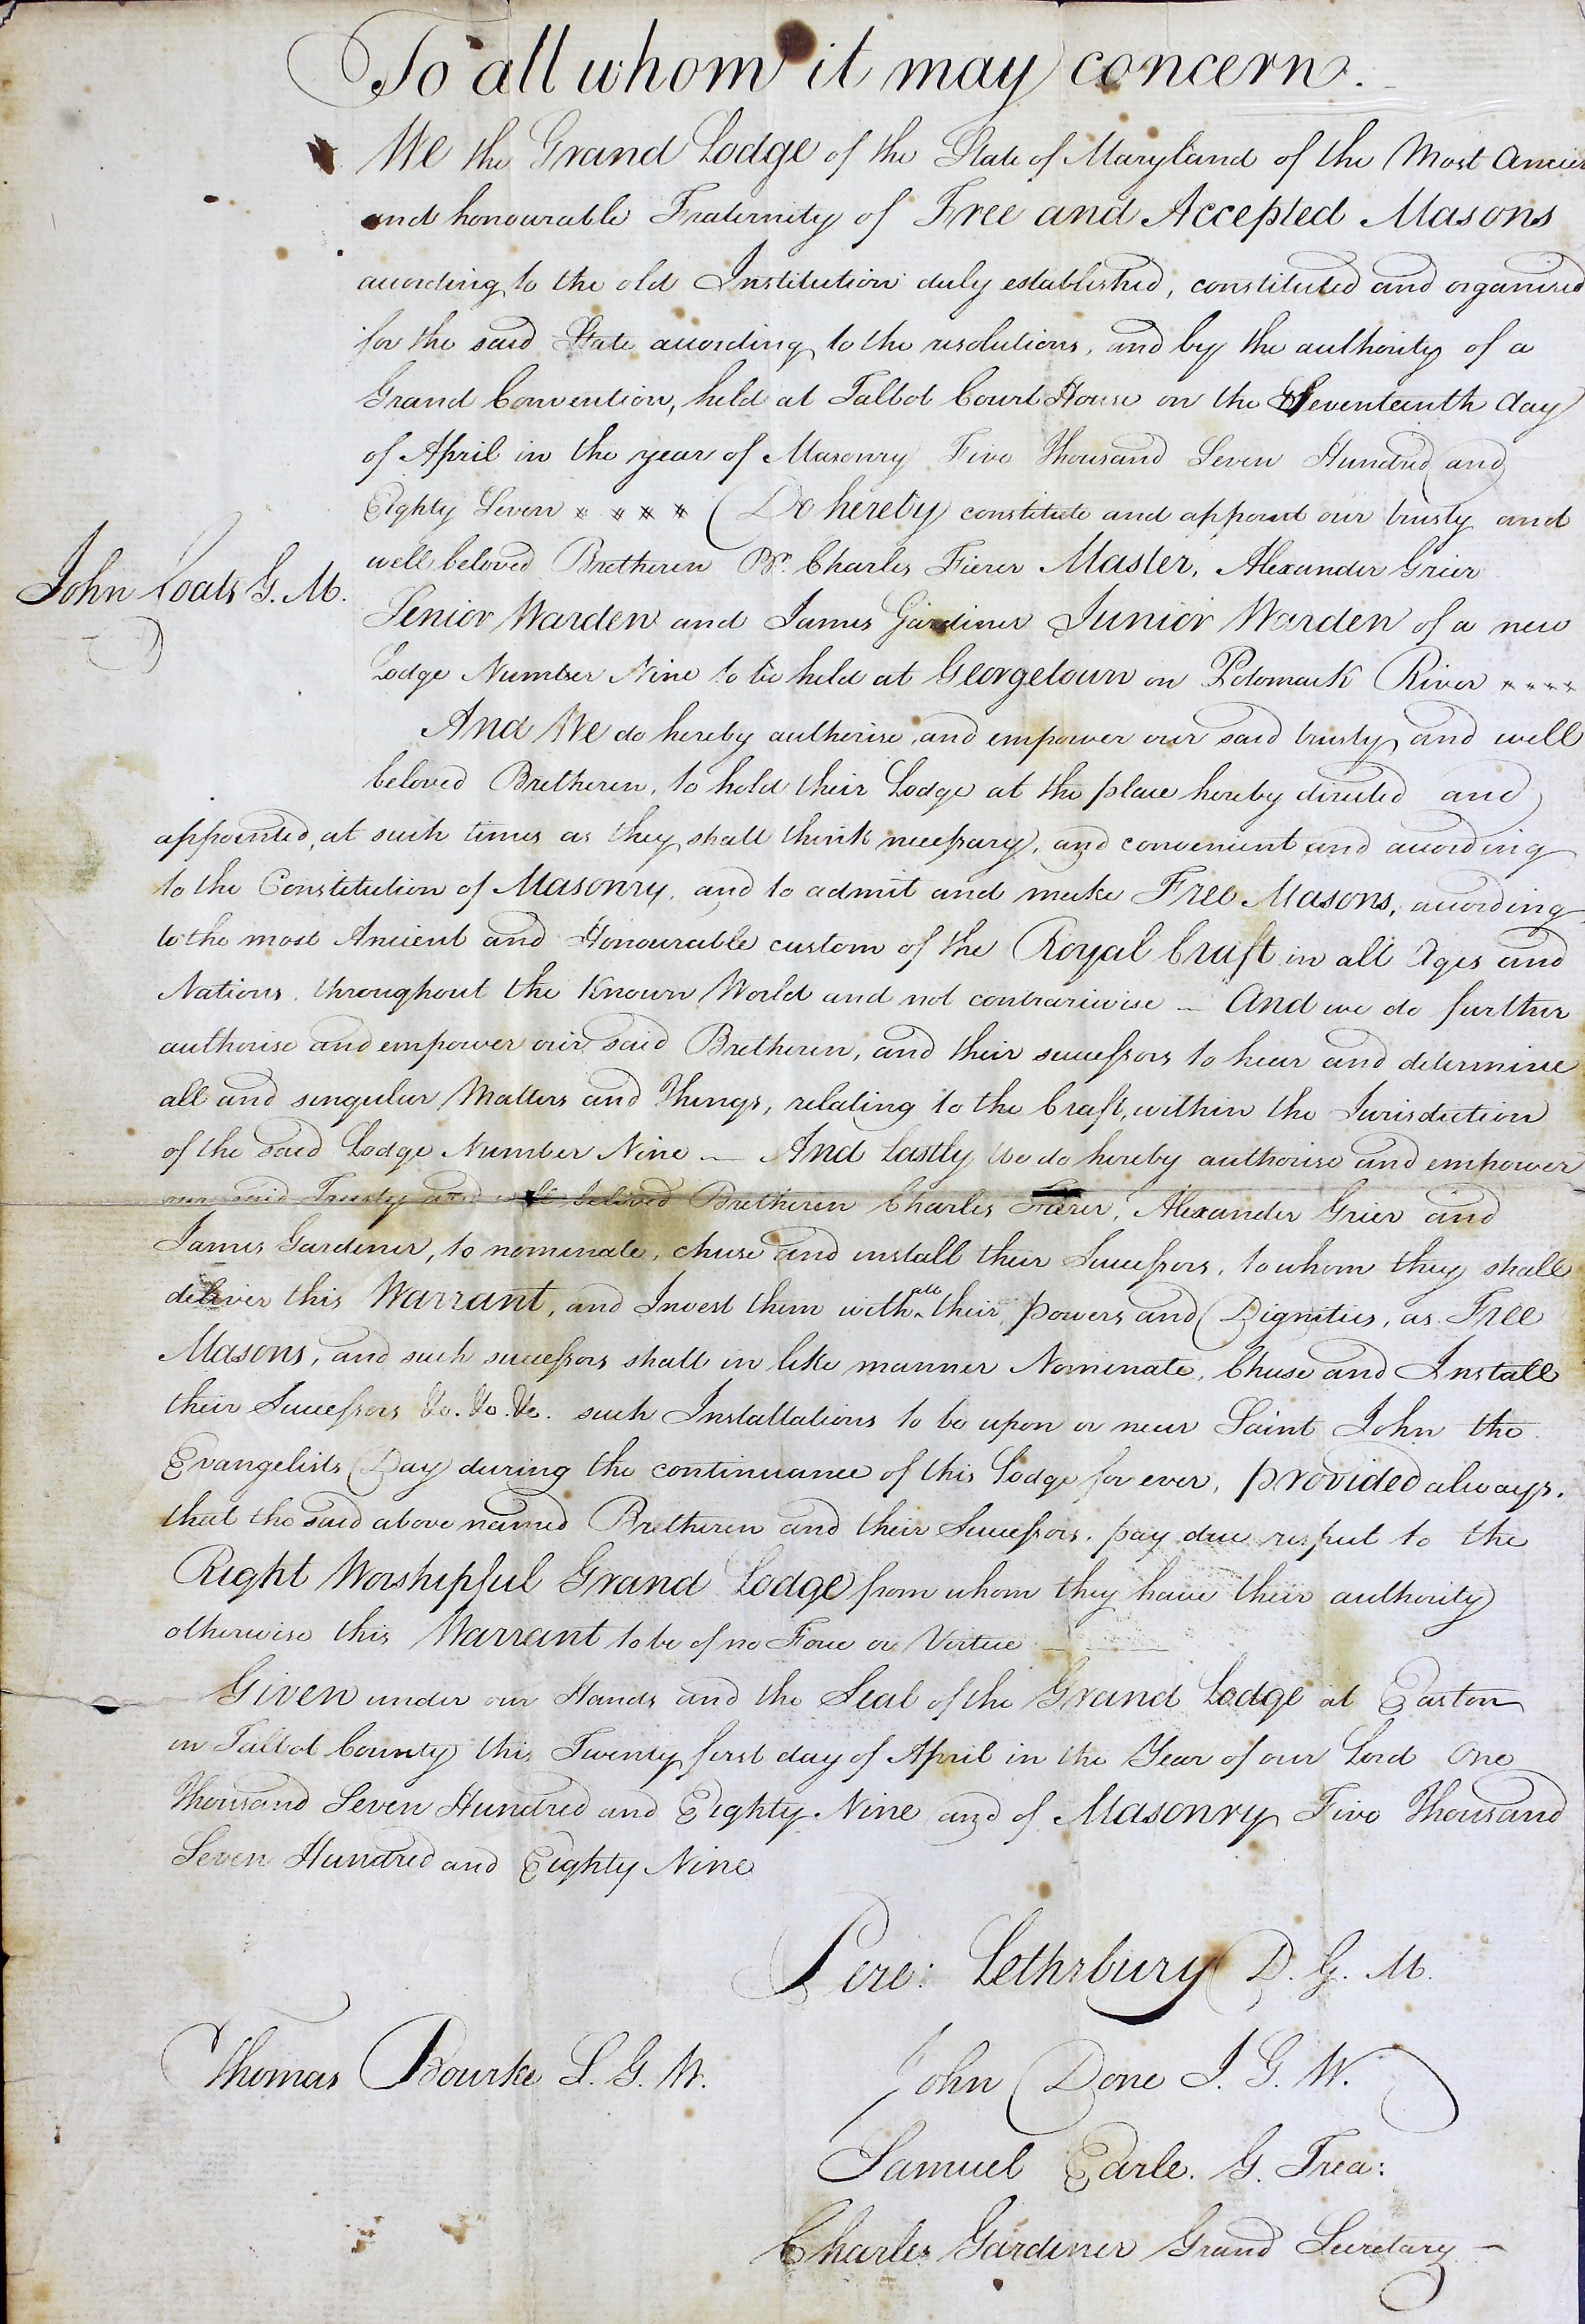 To all whom it may concern.
We the Grand Lodge of the State of Maryland of the Most Ancien
and honourable Fraternity of Free and Accepted Masons
according to the old Institution duly established, constituted and organized
for the said State according to the resolutions, and by the authority of a
Grand Convention, held at Talbot Court House on the Seventeenth day
of April in the year of Masonry Five Thousand Seven Hundred and
Eighty Seven × × × × Do hereby constitute and appoint our trusty and
well beloved Bretheren Br. Charles Fierer Master, Alexander Grier
John Coats G. M.
Senior Warden and James Gardiner Junior Warden of a new
Lodge Number Nine to be held at Georgetown on Potomack River × × × ×
And We do hereby authorise and empower our said trusty and well
beloved Bretheren, to hold their Lodge at the place hereby directed and
appointed, at such times as they shall think necessary, and convenient and according
to the Constitution of Masonry, and to admit and make Free Masons, according
to the most Ancient and Honourable custom of the Royal Craft in all Ages and
Nations, throughout the Known World and not contrariwise — And we do further
authorise and empower our said Bretheren, and their successors to hear and determine
all and singular Matters and Things, relating to the Craft, within the Jurisdiction
of the said Lodge Number Nine — And Lastly We do hereby authorise and empower
our said Trusty and well beloved Bretheren Charles Fierer, Alexander Grier and
James Gardiner, to nominate, chuse and install their Successors, to whom they shall
deliver this Warrant, and Invest them with all their powers and Dignities, as Free
Masons, and such successors shall in like manner Nominate, Chuse and Install
their Successors &c. &c. &c. such Installations to be upon or near Saint John the
Evangelists Day during the continuance of this Lodge for ever, provided always,
that the said above named Bretheren and their Successors, pay due respect to the
Right Worshipful Grand Lodge from whom they have their authority
otherwise this Warrant to be of no Force or Vertue —
Given under our Hands and the Seal of the Grand Lodge at Easton
in Talbot County this Twenty first day of April in the Year of our Lord One
Thousand Seven Hundred and Eighty Nine and of Masonry Five Thousand
Seven Hundred and Eighty Nine
Pere: Lethrbury D. G. M.
Thomas Bourke S. G. W.
John Done J. G. W.
Samuel Earle. G. Trea:
Charles Gardiner Grand Secretary —